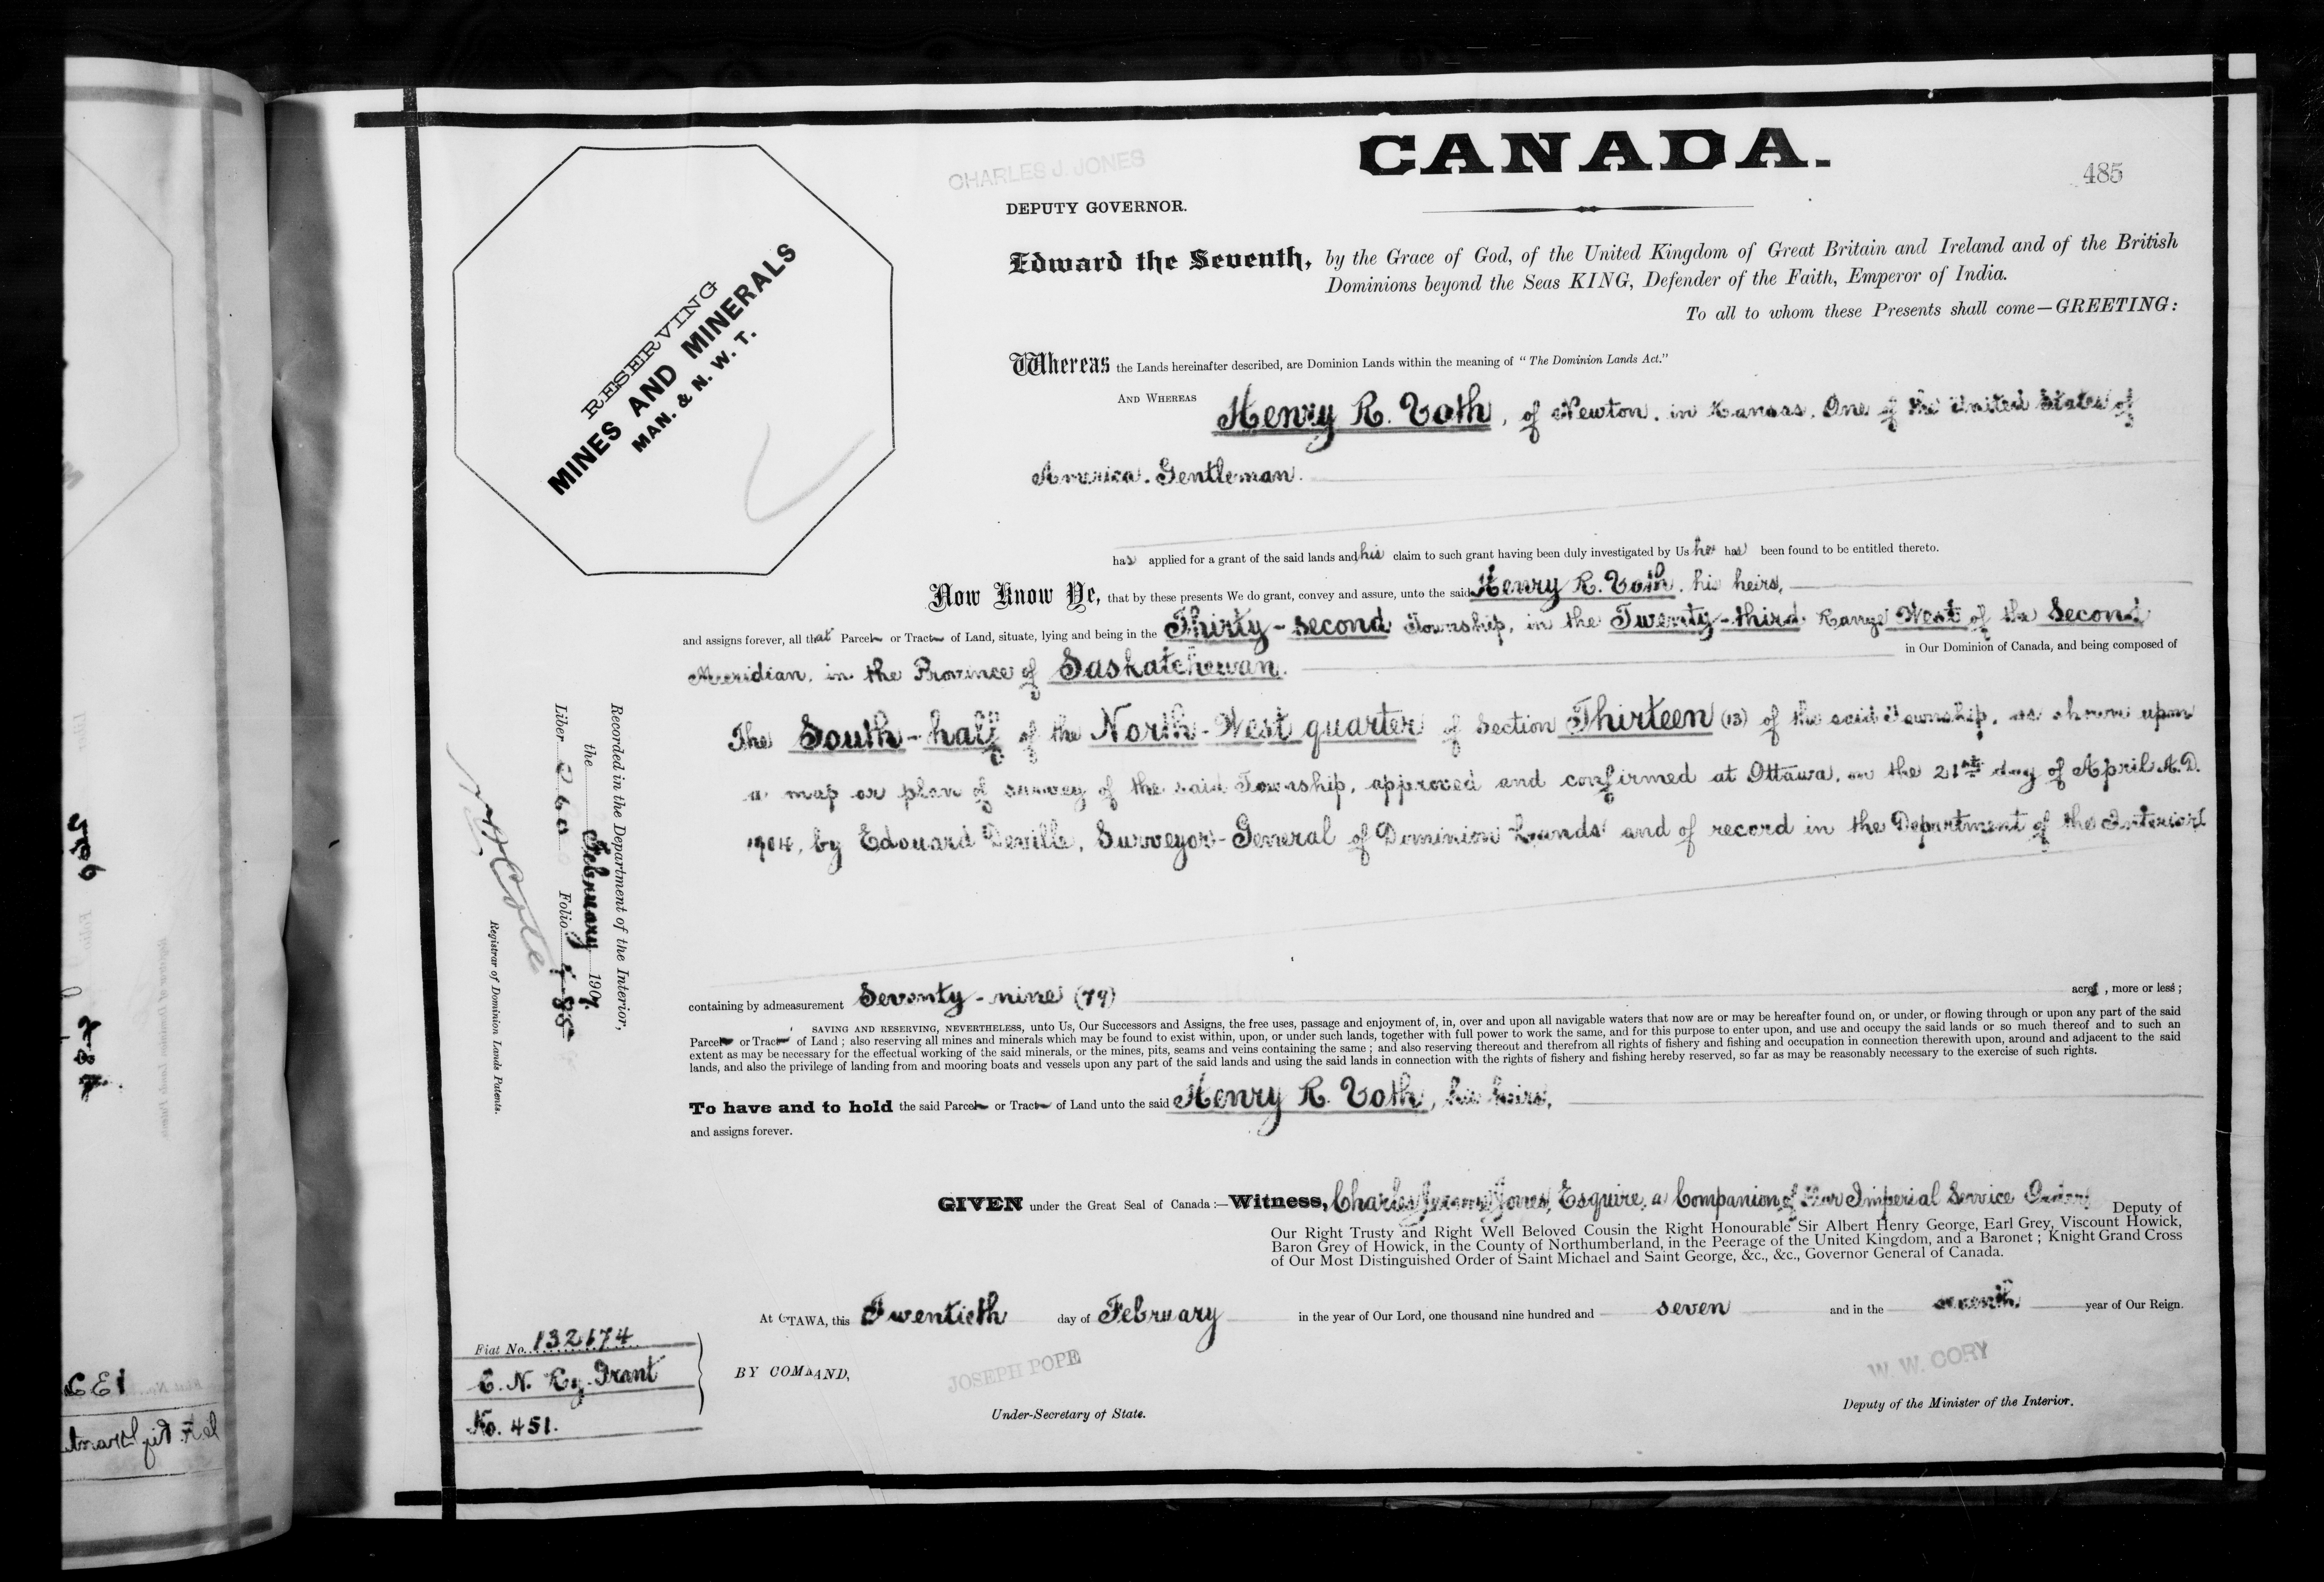 CANADA.
485
CHARLES J. JONES
DEPUTY GOVERNOR.
RESERVING
MINES AND MINERALS
MAN. & N. W. T.
Edward the Seventh, by the Grace of God, of the United Kingdom of Great Britain and Ireland and of the British
Dominions beyond the Seas KING, Defender of the Faith, Emperor of India.
To all to whom these Presents shall come—GREETING:
Whereas the Lands hereinafter described, are Dominion Lands within the meaning of "The Dominion Lands Act."
AND WHEREAS Henry R. Voth, of Newton, in Kansas, One of the United States of
America. Gentleman.
has applied for a grant of the said lands and his claim to such grant having been duly investigated by Us he has been found to be entitled thereto.
Now Know Ye, that by these presents We do grant, convey and assure, unto the said Henry R. Voth, his heirs,
and assigns forever, all that Parcel or Tract of Land, situate, lying and being in the Thirty-second Township, in the Twenty-third Range West of the Second
Meridian, in the Province of Saskatchewan. in Our Dominion of Canada, and being composed of
The South-half of the North-West quarter of Section Thirteen (13) of the said Township, as shown upon
a map or plan of survey of the said Township, approved and confirmed at Ottawa, on the 21st day of April A.D.
1904, by Edouard Deville, Surveyor-General of Dominion Lands and of record in the Department of the Interior
containing by admeasurement Seventy-nine (79) acres, more or less;
SAVING AND RESERVING, NEVERTHELESS, unto Us, Our Successors and Assigns, the free uses, passage and enjoyment of, in, over and upon all navigable waters that now are or may be hereafter found on, or under, or flowing through or upon any part of the said
Parcel or Tract of Land; also reserving all mines and minerals which may be found to exist within, upon, or under such lands, together with full power to work the same, and for this purpose to enter upon, and use and occupy the said lands or so much thereof and to such an
extent as may be necessary for the effectual working of the said minerals, or the mines, pits, seams and veins containing the same; and also reserving thereout and therefrom all rights of fishery and fishing and occupation in connection therewith upon, around and adjacent to the said
lands, and also the privilege of landing from and mooring boats and vessels upon any part of the said lands and using the said lands in connection with the rights of fishery and fishing hereby reserved, so far as may be reasonably necessary to the exercise of such rights.
To have and to hold the said Parcel or Tract of Land unto the said Henry R. Voth, his heirs,
and assigns forever.
GIVEN under the Great Seal of Canada:—Witness, Charles Jones, Esquire, a Companion of Our Imperial Service Order, Deputy of
Our Right Trusty and Right Well Beloved Cousin the Right Honourable Sir Albert Henry George, Earl Grey, Viscount Howick,
Baron Grey of Howick, in the County of Northumberland, in the Peerage of the United Kingdom, and a Baronet; Knight Grand Cross
of Our Most Distinguished Order of Saint Michael and Saint George, &c., &c., Governor General of Canada.
At OTTAWA, this Twentieth day of February in the year of Our Lord, one thousand nine hundred and seven and in the seventh year of Our Reign.
BY COMMAND,
JOSEPH POPE
Under-Secretary of State.
W. W. CORY
Deputy of the Minister of the Interior.
Fiat No. 132174
C. N. Ry. Grant
No. 451.
Recorded in the Department of the Interior,
the February 1907.
Liber 260 Folio 485
N. O. Coté
Registrar of Dominion Lands Patents.